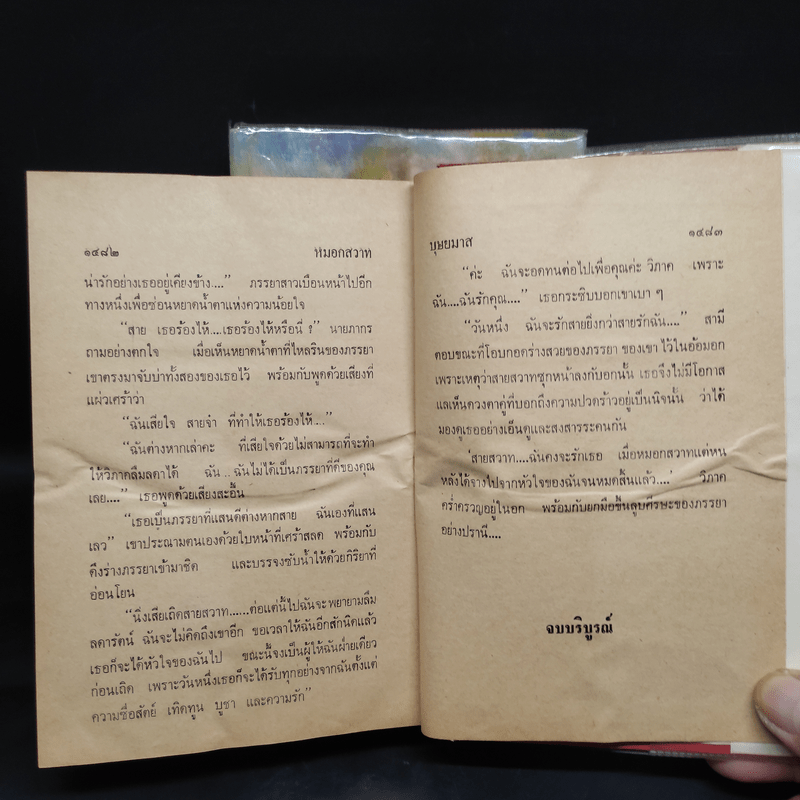 ๑๔๘๒ หมอกสวาท
น่ารักอย่างเธออยู่เคียงข้าง....” ภรรยาสาวเบือนหน้าไปอีก
ทางหนึ่งเพื่อซ่อนหยาดน้ำตาแห่งความน้อยใจ
“สาย เธอร้องไห้....เธอร้องไห้หรือนี่ ?” นายภากร
ถามอย่างตกใจ เมื่อเห็นหยาดน้ำตาที่ไหลรินของภรรยา
เขาตรงมาจับบ่าทั้งสองของเธอไว้ พร้อมกับพูดด้วยเสียงที่
แผ่วเศร้าว่า
“ฉันเสียใจ สายจ๋า ที่ทำให้เธอร้องไห้....”
“ฉันต่างหากเล่าคะ ที่เสียใจด้วยไม่สามารถที่จะทำ
ให้วิภาคลืมลดาได้ ฉัน...ฉันไม่ได้เป็นภรรยาที่ดีของคุณ
เลย....” เธอพูดด้วยเสียงสะอื้น
“เธอเป็นภรรยาที่แสนดีต่างหากสาย ฉันเองที่แสน
เลว” เขาประณามตนเองด้วยใบหน้าที่เศร้าสลด พร้อมกับ
ดึงร่างภรรยาเข้ามาชิด และบรรจงซับน้ำให้ด้วยกิริยาที่
อ่อนโยน
“นิ่งเสียเถิดสายสวาท......ต่อแต่นี้ไปฉันจะพยายามลืม
ลดารัตน์ ฉันจะไม่คิดถึงเขาอีก ขอเวลาให้ฉันอีกสักนิดแล้ว
เธอก็จะได้หัวใจของฉันไป ขณะนี้จงเป็นผู้ให้ฉันฝ่ายเดียว
ก่อนเถิด เพราะวันหนึ่งเธอก็จะได้รับทุกอย่างจากฉันตั้งแต่
ความซื่อสัตย์ เทิดทูน บูชา และความรัก”
บุษยมาส ๑๔๘๓
“ค่ะ ฉันจะอดทนต่อไปเพื่อคุณค่ะ วิภาค เพราะ
ฉัน....ฉันรักคุณ....” เธอกระซิบบอกเขาเบา ๆ
“วันหนึ่ง ฉันจะรักสายยิ่งกว่าสายรักฉัน....” สามี
ตอบขณะที่โอบกอดร่างสวยของภรรยา ของเขา ไว้ในอ้อมอก
เพราะเหตุว่าสายสวาทซุกหน้าลงกับอกนั้น เธอจึงไม่มีโอกาส
แลเห็นดวงตาคู่ที่บอกถึงความปวดร้าวอยู่เป็นนิจนั้น ว่าได้
มองดูเธออย่างเอ็นดูและสงสารระคนกัน
‘สายสวาท....ฉันคงจะรักเธอ เมื่อหมอกสวาทแต่หน
หลังได้จางไปจากหัวใจของฉันจนหมดสิ้นแล้ว....’ วิภาค
คร่ำครวญอยู่ในอก พร้อมกับยกมือขึ้นลูบศีรษะของภรรยา
อย่างปรานี....
จบบริบูรณ์